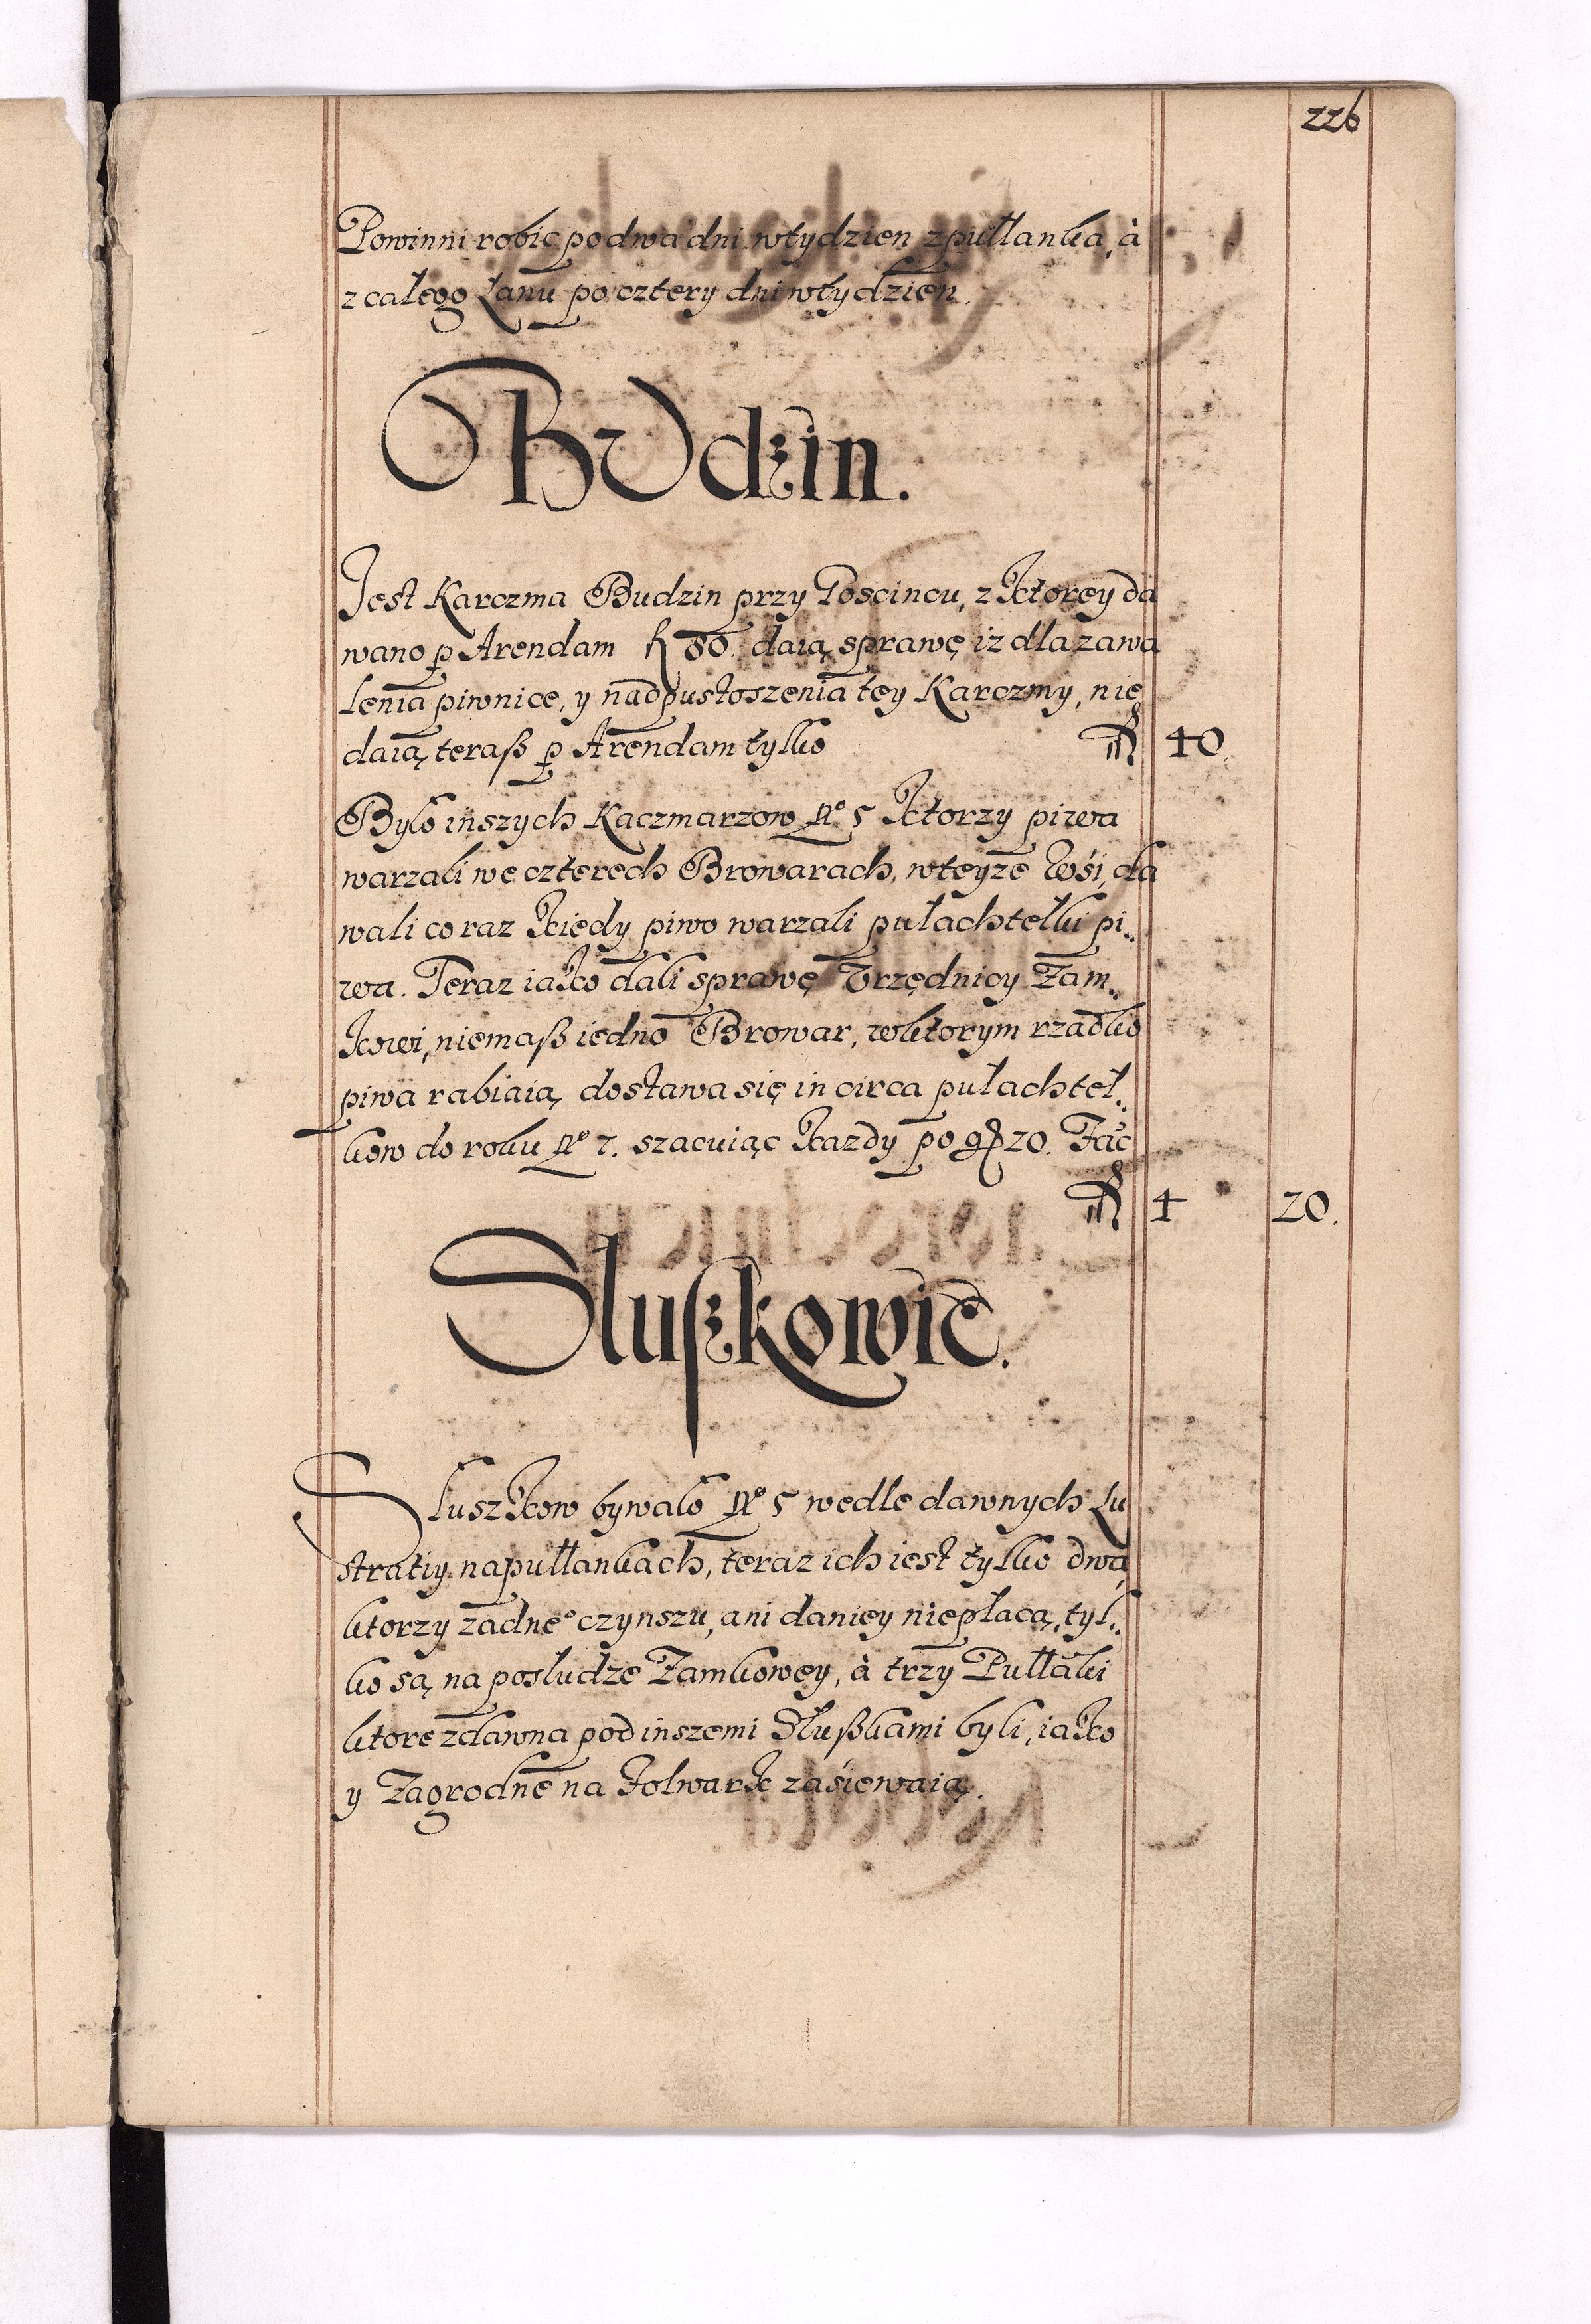 226
Powinni robic po dwa dni wtydzien zpułłanka, à
z całego Łanu po cztery dni wtydzien.
Budzin.
Jest Karczma Budzin przy Goscincu, z Ktorey da
wano p Arendam fl 80. daią sprawę iz dla zawa
lenia piwnice, y nadpustoszenia tey Karczmy, nie
daią teraß p Arendam tylko fl 40.
Było inszych Kaczmarzow No 5 Ktorzy piwa
warzali we czterech Browarach, wteyze Wśi, da
wali co raz Kiedy piwo warzali pułachtelki pi„
wa. Teraz iako dali sprawę Vrzędnicy Zam„
kowi, niemaß iedno Browar, wktorym rzadko
piwa rabiaią, dostawa się in circa pułachtel„
kow do roku No 7. szacuiąc Kazdy po g 20. Fac
fl 4 20.
Slußkowie.
Sluszkow bywało No 5 wedle dawnych Lu
stratiy na pułłankach, teraz ich iest tylko dwa,
ktorzy zadneo czynszu, ani daniey niepłacą, tyl„
ko są na posłudze Zamkowey, à trzy Pułłaki
ktore zdawna pod inszemi Slußkami byli, iako
y Zagrodne na Folwark zaśiewaią.